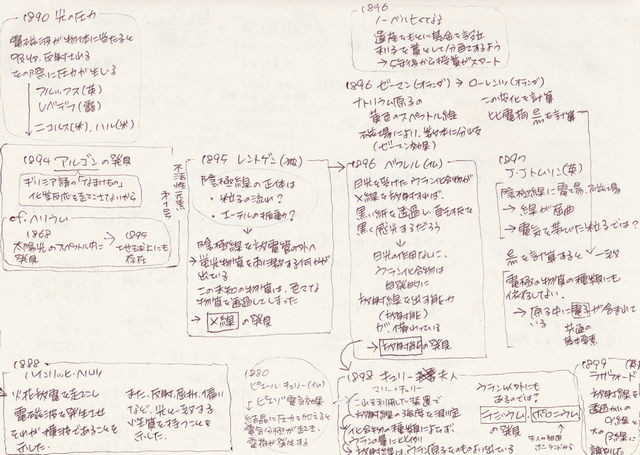 1890 光の圧力
電磁波が物体に当たると
吸収、反射される
その際に圧力が生じる
レベデフ(露)
ニコルス(米), ハル(米)
1894 アルゴンの発見
ギリシア語の「なまけもの」
化学反応を起こさないから
cf. ヘリウム
1868
太陽光のスペクトル中に
発見
→ 1895
地球上にも
存在
不活性元素
1888
ハインリッヒ・ヘルツ
火花放電を起こし
電磁波を発生させ
それが横波であることを
示した.
また、反射, 屈折, 偏り
など、光と一致する
性質を持つことを
示した.
1895 レントゲン(独)
陰極線の正体は
・粒子の流れ?
・エーテルの振動?
陰極線を放電管の外へ
→ 蛍光物質を刺激する何かが
出ている
この未知の物質は、色々な
物質を透過してしまった
→ X線 の発見
1880
ピエール・キュリー(仏)
ピエゾ電気効果
結晶に圧力を加えると
電気分極が起き,
電荷が発生する
1896
ノーベル亡くなる
遺産をもとに基金を設立
利子を賞として分配するよう
→ 5年後から授賞がスタート
1896 ゼーマン(オランダ) → ローレンツ(オランダ)
ナトリウム原子の
黄色のスペクトル線
磁場により、数本に分かれる
(ゼーマン効果)
この変化を計算
比電荷 e/m を計算
1896 ベクレル(仏)
日光を受けたウラン化合物が
X線を放射すれば,
黒い紙を透過し 写真板を
黒く感光するだろう
日光の作用なしに,
ウラン化合物は
自発的に
放射線を出す能力
(放射能)
が, 備わっている
→ 放射能 の発見
1897
J.J.トムソン(英)
陰極線に電場, 磁場
→ 線が屈曲
→ 電気を帯びた粒子では?
e/m を計算すると 一致
電極の物質の種類にも
依存してない.
→ 原子中に電子が含まれて
いる
共通の
基本要素
1898 キュリー夫人
マリー・キュリー
これを利用した装置で
放射線の強度を測定
化合物の種類によらず,
ウランの量に比例
→ 放射線は、ウラン原子そのものより出ている
ウラン以外にも
あるのでは?
ラジウム, ポロニウム
の発見
夫人の祖国
ポーランドから
1899
ラザフォード
放射線を
α線と